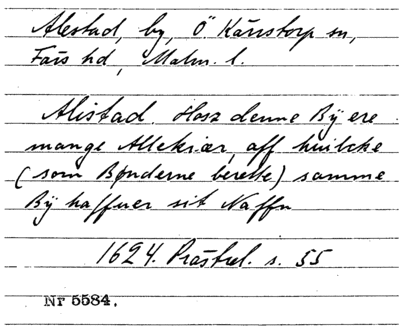 Alestad, by, Ö. Kärrstorp sn,
Färs hd, Malm. l.
Alistad. Hosz denne Bÿ ere
mange Allekiær, aff huilcke
(som Bønderne berette) samme
Bÿ haffuer sit Naffn
1624. Prästrel. s. 55
Nr 5584.